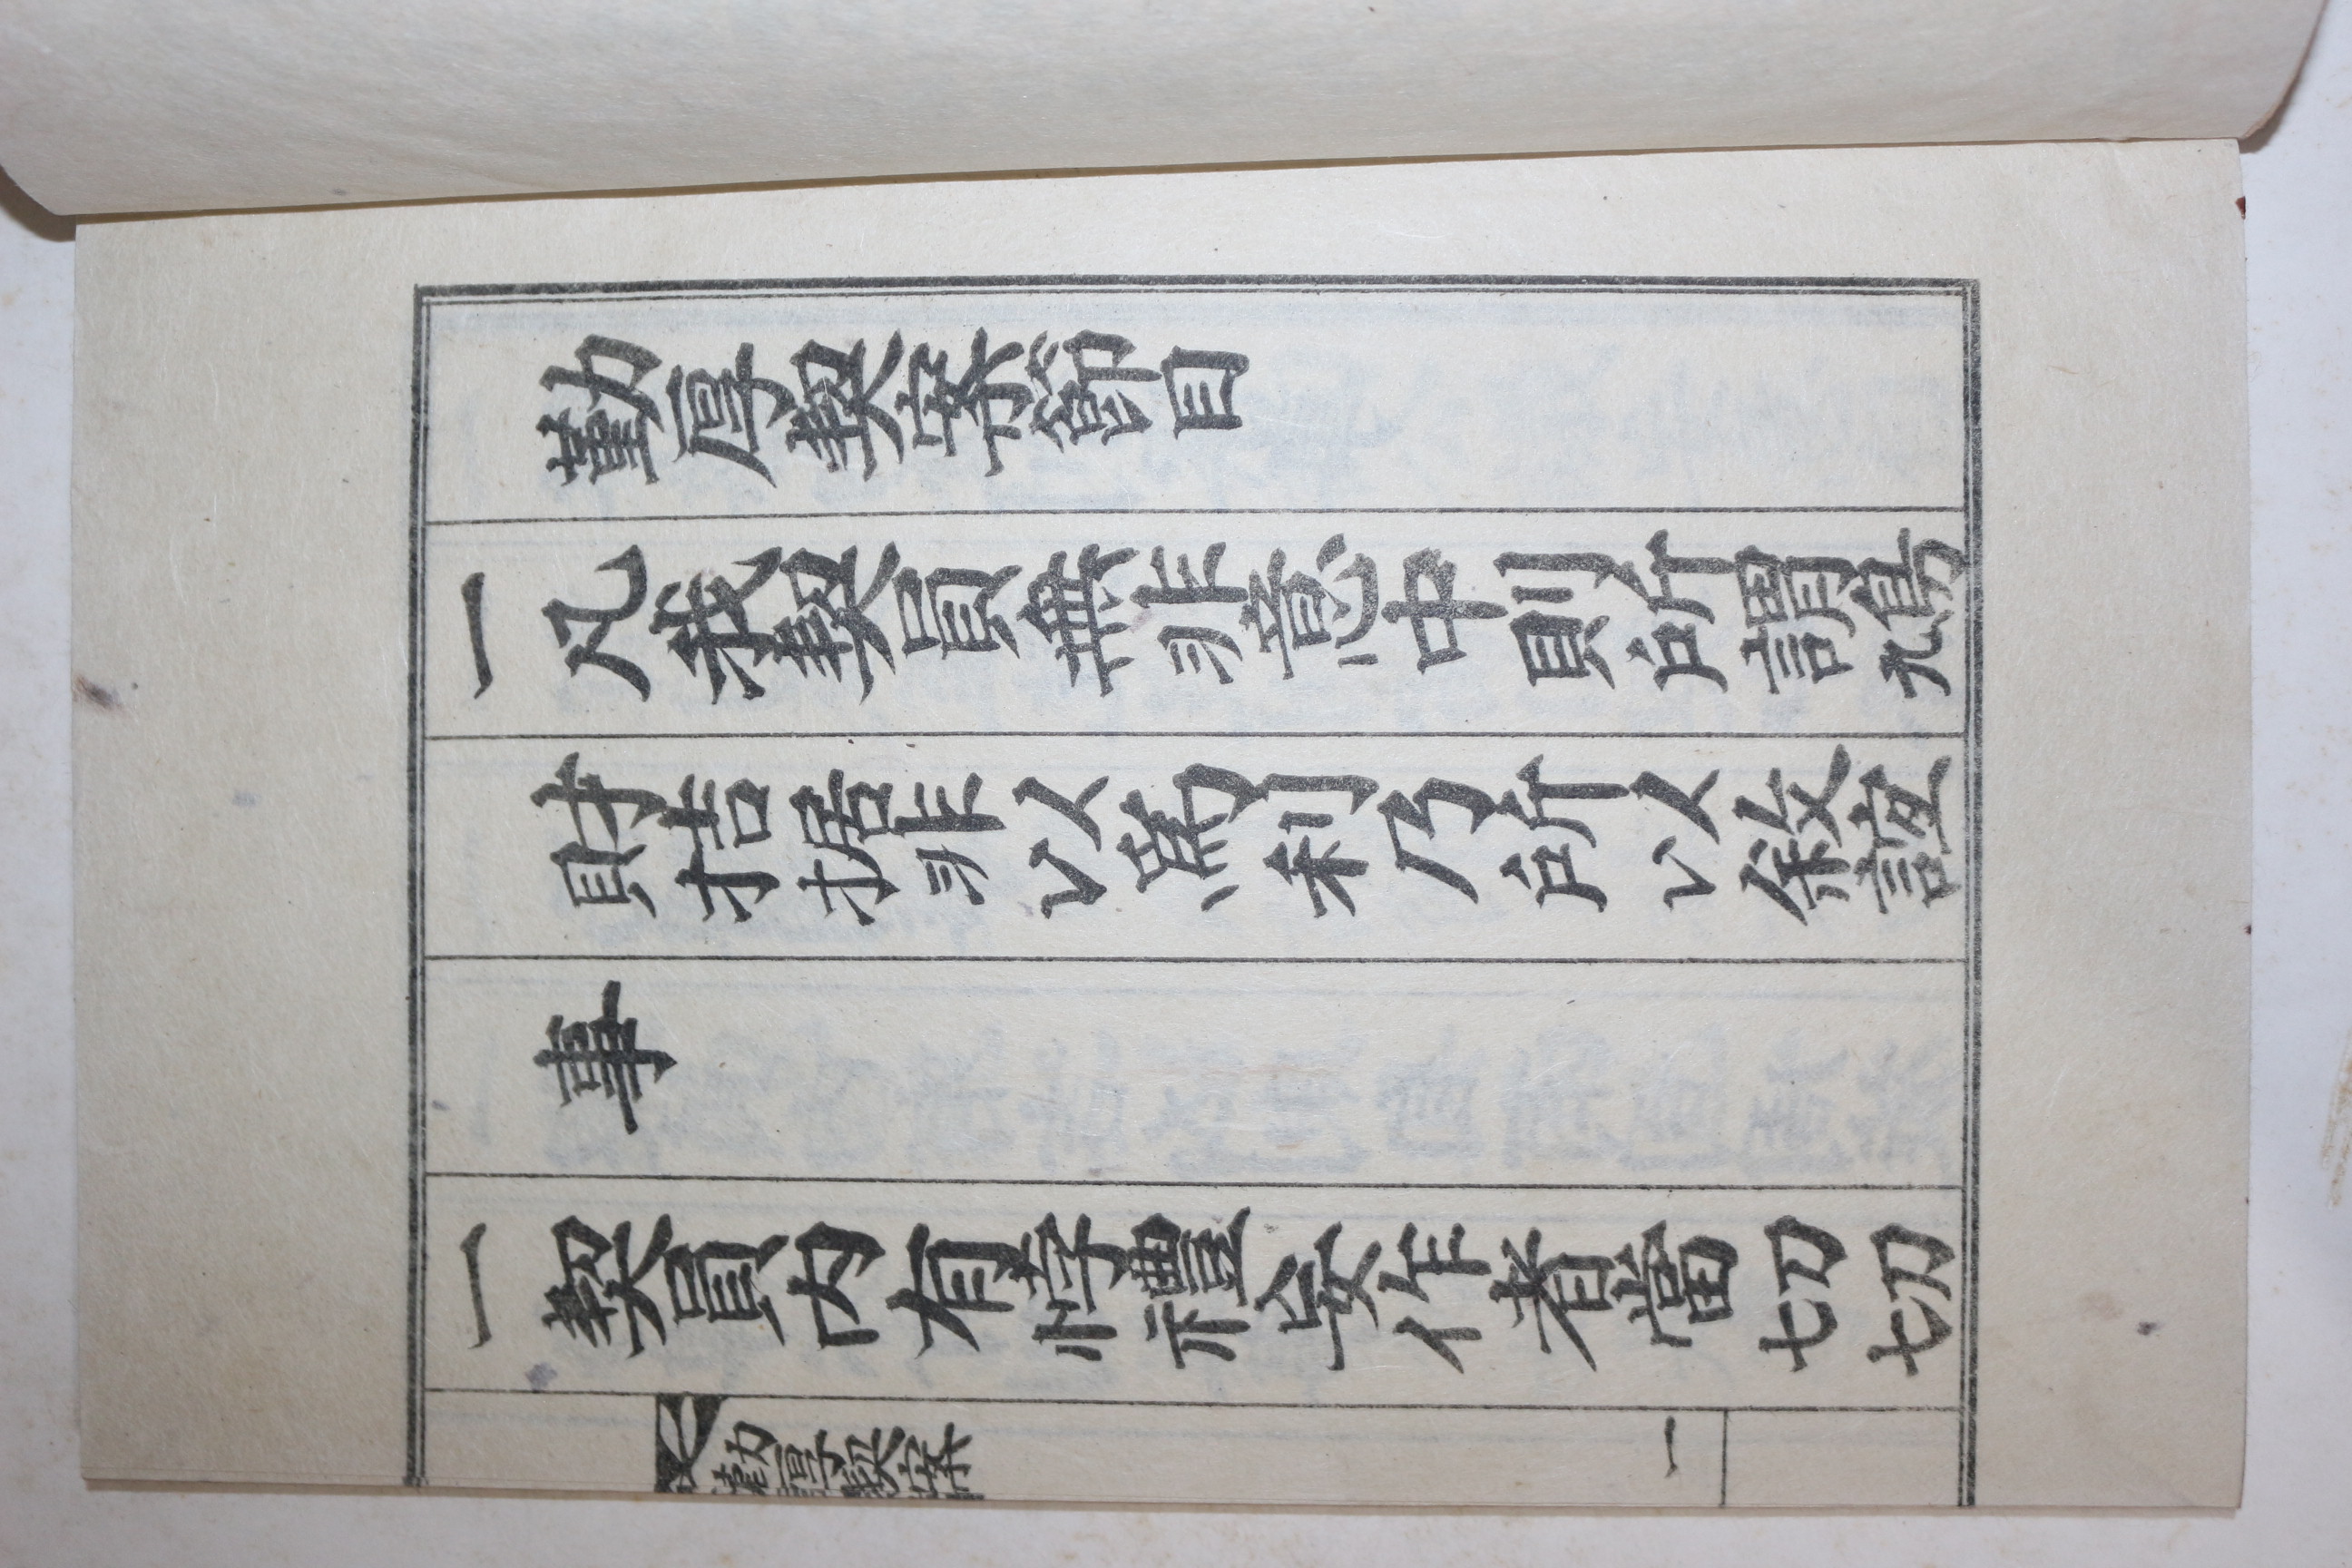 勸厚契案節目
一凡我契員無非意中則所謂鳩
財拮据非以爲利乃所以敍誼
事
一契員內有悖禮妄作者當切切
勸厚契案 一